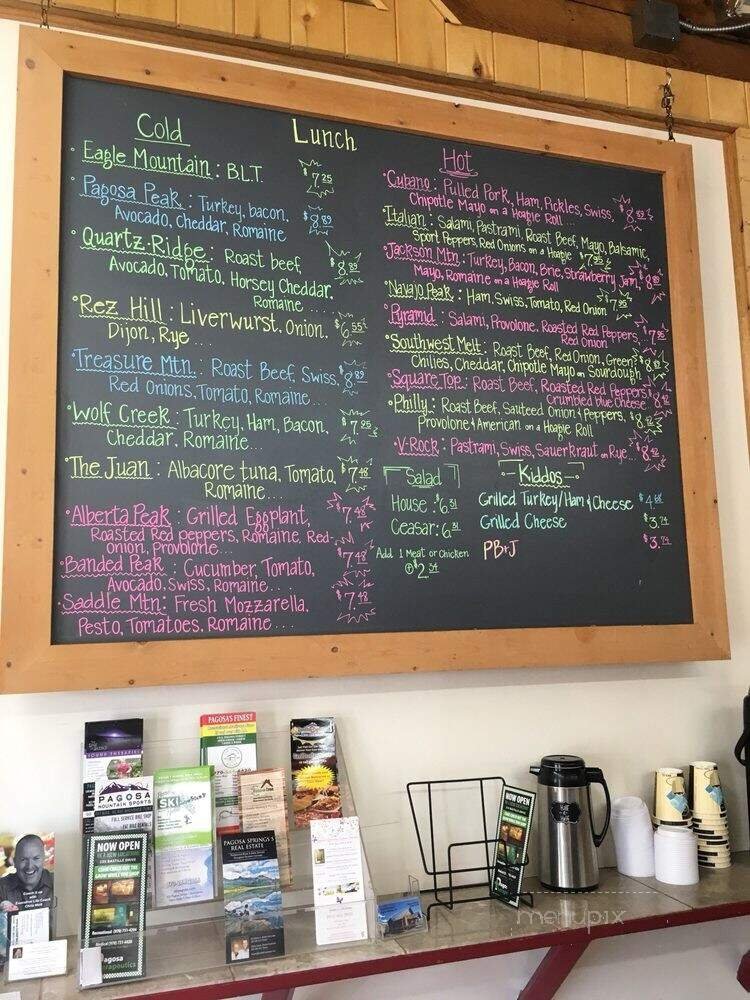 Lunch
Cold
• Eagle Mountain : B.L.T. $7.25
• Pagosa Peak : Turkey, bacon, $8.89
Avocado, Cheddar, Romaine
• Quartz-Ridge : Roast beef, $8.89
Avocado, Tomato, Horsey Cheddar,
Romaine ....
• Rez Hill : Liverwurst, Onion, $6.55
Dijon, Rye ...
• Treasure Mtn. : Roast Beef, Swiss, $8.89
Red Onions, Tomato, Romaine...
• Wolf Creek : Turkey, Ham, Bacon, $7.95
Cheddar, Romaine...
• The Juan : Albacore tuna, Tomato, $7.48
Romaine...
• Alberta Peak : Grilled Eggplant, $7.48
Roasted Red peppers, Romaine, Red-
onion, Provolone...
• Banded Peak : Cucumber, Tomato, $7.48
Avocado, Swiss, Romaine...
• Saddle Mtn: Fresh Mozzarella, $7.48
Pesto, Tomatoes, Romaine ...
Hot
• Cubano : Pulled Pork, Ham, Pickles, Swiss,
Chipotle Mayo on a Hoagie Roll...
• Italian : Salami, Pastrami, Roast Beef, Mayo, Balsamic,
Sport Peppers, Red Onions on a Hoagie $7.95
• Jackson Mtn: Turkey, Bacon, Brie, Strawberry Jam,
Mayo, Romaine on a Hoagie Roll
• Navajo Peak : Ham, Swiss, Tomato, Red Onion $7.95
• Pyramid : Salami, Provolone, Roasted Red Peppers, $7.95
Red Onion
• Southwest Melt : Roast Beef, Red Onion, Green
Chilies, Cheddar, Chipotle Mayo on Sourdough
• Square Top : Roast Beef, Roasted Red Peppers,
Crumbled blue Cheese
• Philly : Roast Beef, Sauteed Onion & Peppers,
Provolone & American on a Hoagie Roll
• V-Rock : Pastrami, Swiss, Sauerkraut on Rye...
Salad
House : $6.31
Ceasar: 6.31
Add 1 Meat or Chicken
+ $2.34
Kiddos
Grilled Turkey/Ham & Cheese $4.68
Grilled Cheese $3.74
PB+J $3.74
PAGOSA'S FINEST
PAGOSA
MOUNTAIN SPORTS
FULL SERVICE BIKE SHOP
SKI
NOW OPEN
Pagosa
PAGOSA SPRINGS
REAL ESTATE
NOW OPEN
menupix